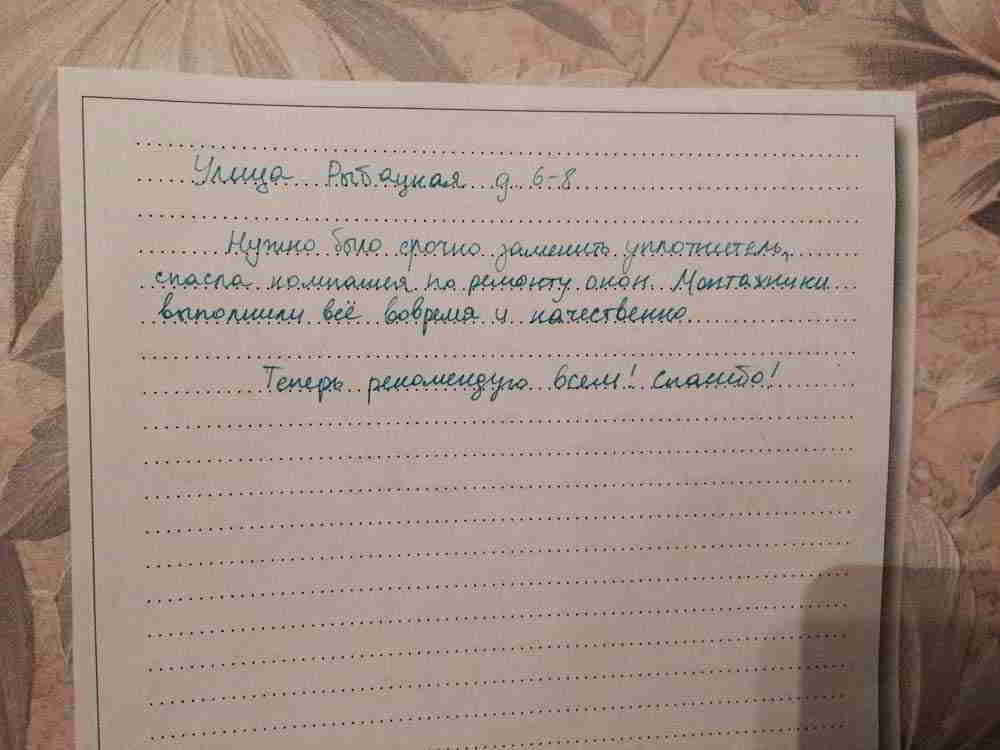 Улица Рыбацкая д 6-8
Нужно было срочно заменить уплотнитель,
спасла компания по ремонту окон. Монтажники
выполнили всё вовремя и качественно.
Теперь рекомендую всем! Спасибо!